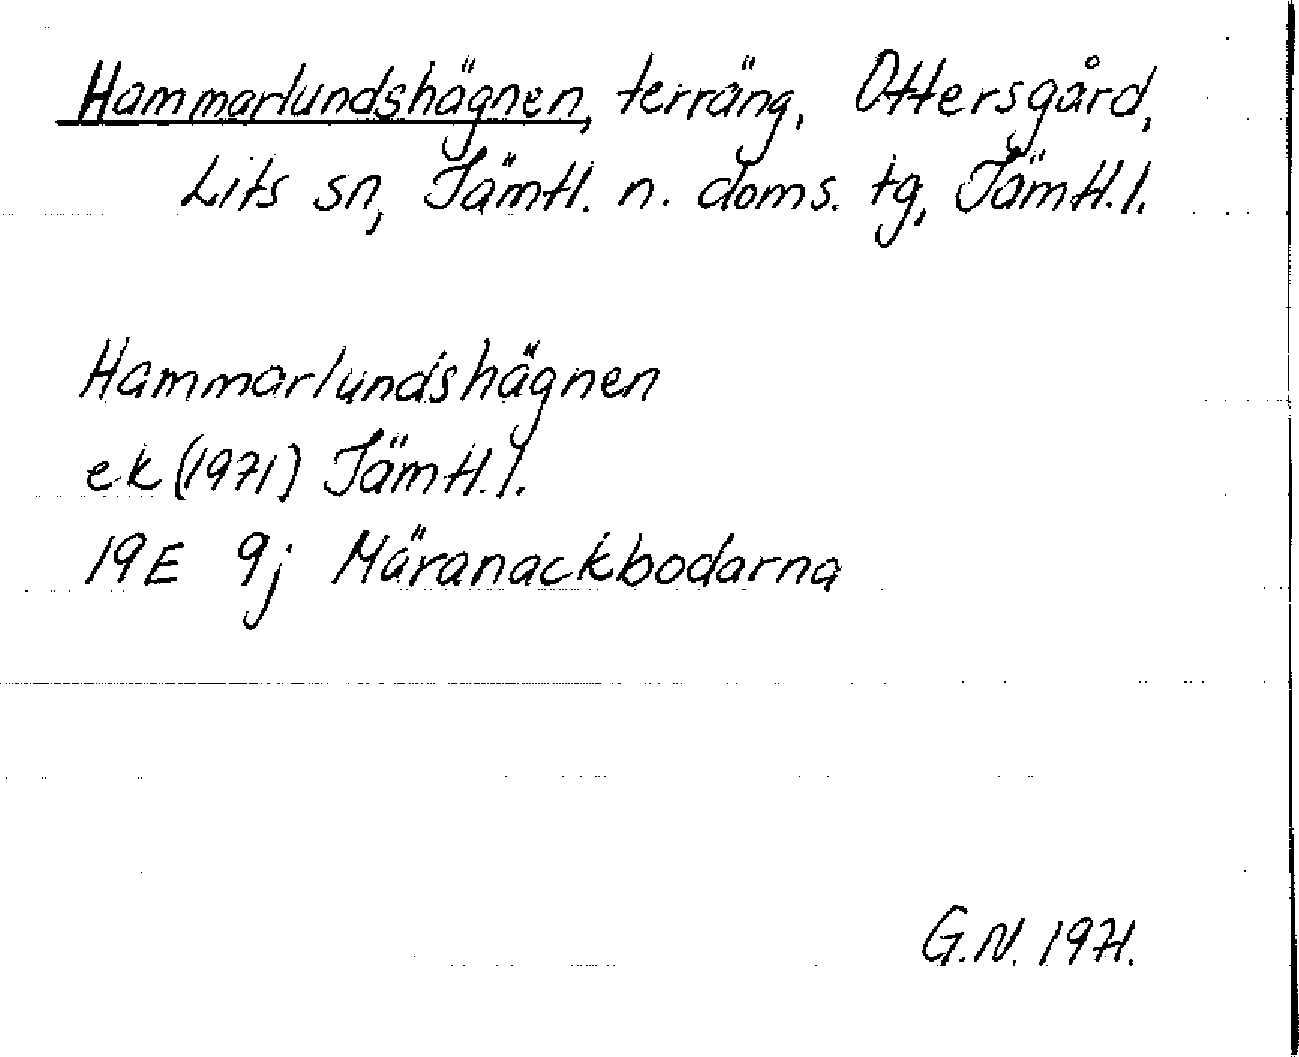 Hammarlundshägnen, terräng, Ottersgård,
Lits sn, Jämtl. n. doms. tg, Jämtl.l.
Hammarlundshägnen
ek (1971) Jämtl.l.
19E 9j Märanackbodarna
G.N. 1971.